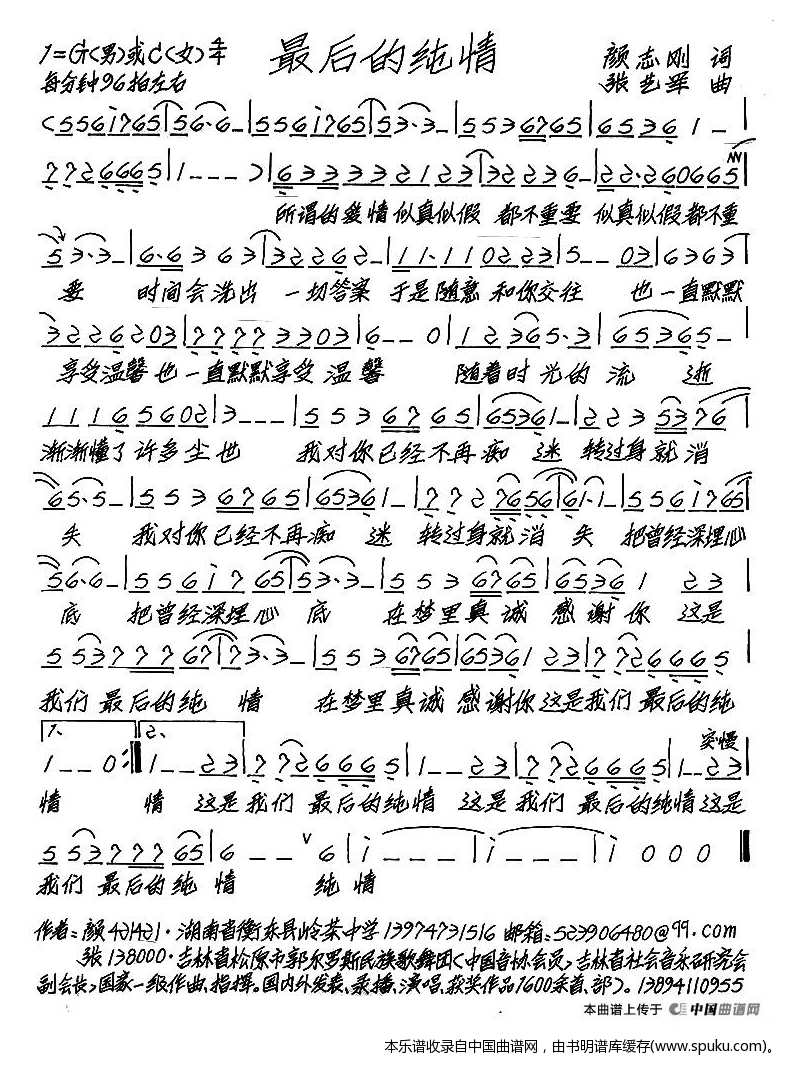 最后的纯情
1=G(男)或C(女) 4/4
颜志刚 词
每分钟96拍左右
张艺军 曲
(5 5 6 i 7 6 5 | 5 6· 6 – | 5 5 6 i 7 6 5 | 5 3· 3 – | 5 5 3 6 7 6 5 | 6 5 3 6 1 – |
7 7 2 6 6 6 5 | 1 – – – ) | 6 3 3 3 3 2 1 2 3 | 3 2 2 3 6 – | 2 2· 2 6 0 6 6 5
所谓的爱情似真似假 都不重要 似真似假都不重
5 3· 3 – | 6· 6 3 6 3 | 3 2 2 6 2 – | 1 1· 1 1 0 2 2 3 | 5 – – 0 3 | 6 3 6 3 |
要 时间会洗出 一切答案 于是随意 和你交往 也一直默默
3 2 2 6 2 0 3 | 7 7 7 7 3 3 0 3 | 6 – – 0 | 1 2 3 6 5· 3 | 6 5 3 6 5 –
享受温馨也一直默默享受温馨 随着时光的流 逝
1 1 1 6 5 6 0 2 | 3 – – – | 5 5 3 6 7 6 5 | 6 5 3 6 1 – | 2 2 3 5 3 7 6
渐渐懂了许多尘世 我对你已经不再痴 迷 转过身就消
6 5· 5 – | 5 5 3 6 7 6 5 | 6 5 3 6 1 – | 7 7 2 7 6 5 6 | 6 1· 1 – | 5 5 6 i 7 6 5
失 我对你已经不再痴 迷 转过身就消 失 把曾经深埋心
5 6· 6 – | 5 5 6 i 7 6 5 | 5 3· 3 – | 5 5 3 6 7 6 5 | 6 5 3 6 1 2 3 |
底 把曾经深埋心 底 在梦里真诚 感谢你 这是
5 5 3 7 7 7 6 7 | 7 3· 3 – | 5 5 3 6 7 6 5 | 6 5 3 6 1 2 3 | 7 7 2 6 6 6 5 |
我们 最后的纯 情 在梦里真诚 感谢你这是我们 最后的纯
1. 2. 突慢
1 – – 0 :‖ 1 – – 2 3 | 7 7 2 6 6 6 5 | 1 – – 2 3 | 7 7 2 6 6 6 5 | 1 – – 2 3 |
情 情 这是我们 最后的纯情 这是我们 最后的纯情这是
5 5 3 7 7 7 6 5 | 6 – – ∨ 6 | i – – – | i – – – | i 0 0 0 ‖
我们 最后的纯 情 纯 情
作者:颜421421·湖南省衡东县岭茶中学13974731516 邮箱:523906480@qq.com
张138000·吉林省松原市郭尔罗斯民族歌舞团(中国音协会员,吉林省社会音乐研究会
副会长,国家一级作曲、指挥。国内外发表、录播、演唱、获奖作品1600余首、部)。13894110955
本曲谱上传于 中国曲谱网
本乐谱收录自中国曲谱网，由书明谱库缓存(www.spuku.com)。